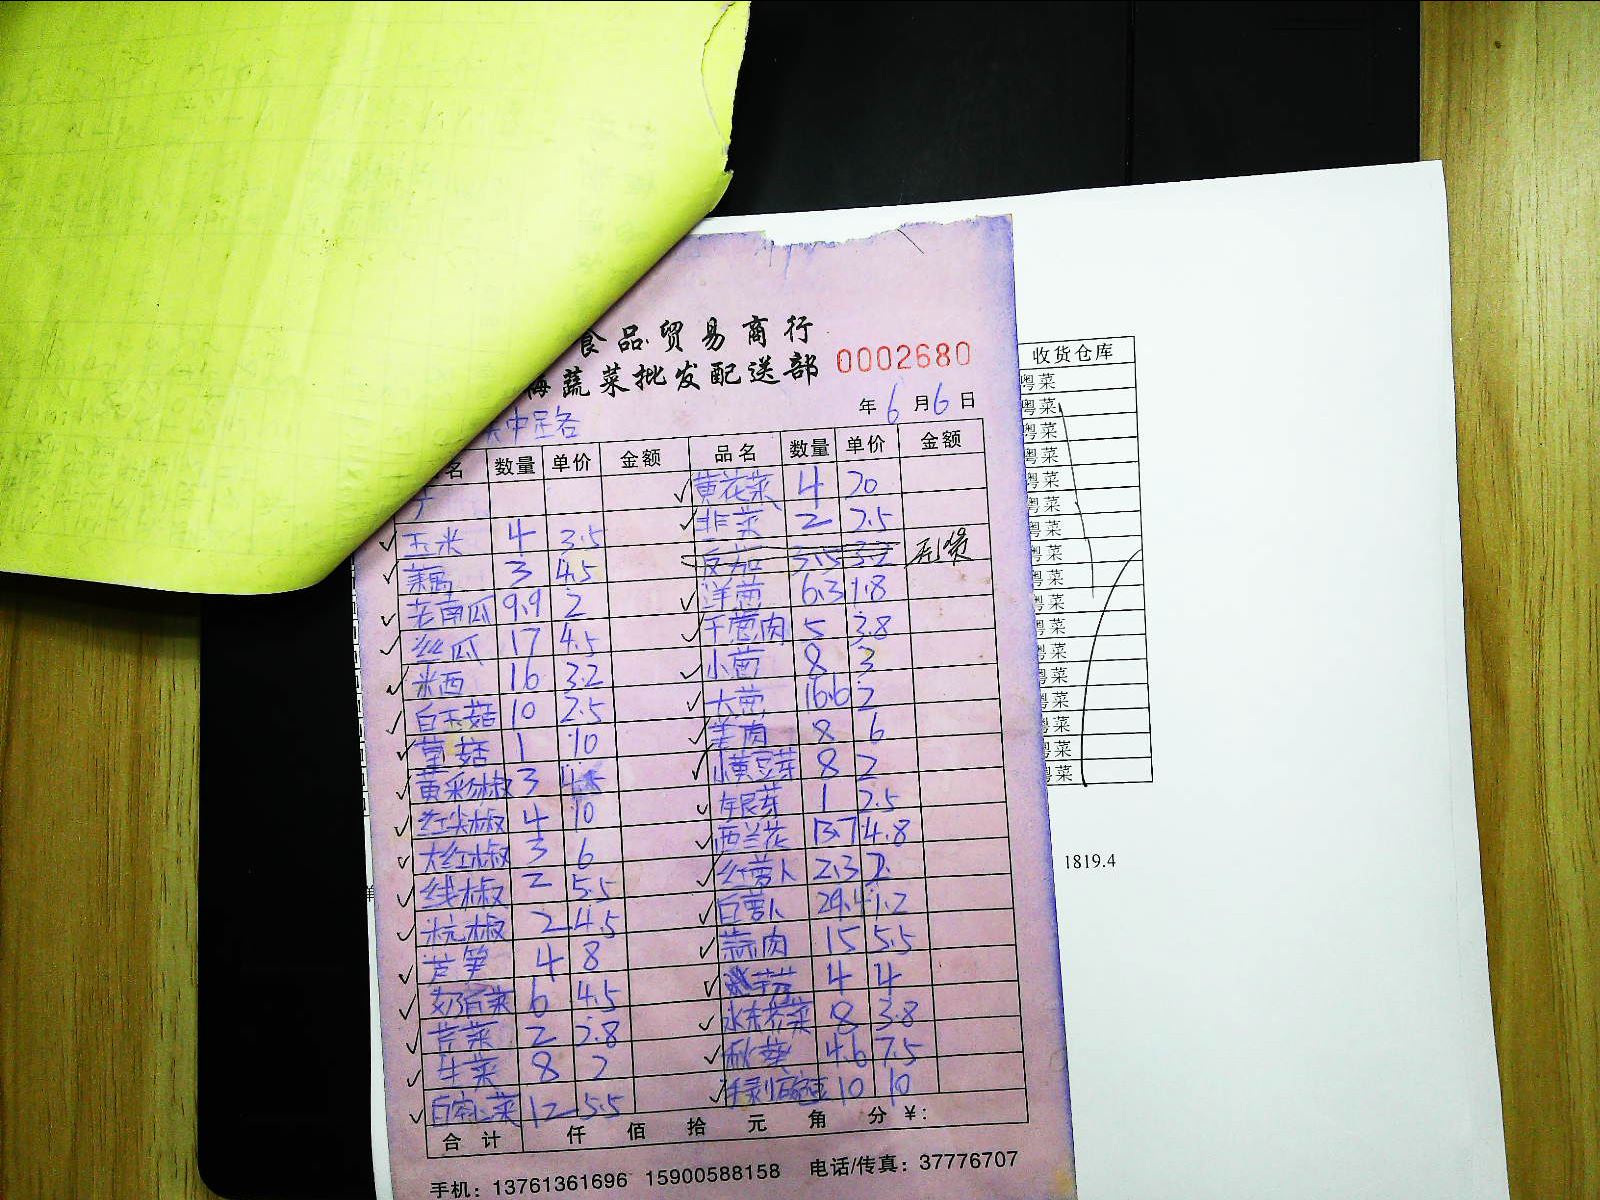 食品贸易商行
海蔬菜批发配送部 0002680
年6月6日
名 数量 单价 金额 品名 数量 单价 金额
黄花菜 4 20
玉米 4 3.5 韭菜 2 2.5
藕 3 4.5
老南瓜 9.9 2 洋葱 6.3 1.8
丝瓜 17 4.5 干葱肉 5 3.8
米西 16 3.2 小葱 8 3
白玉菇 10 2.5 大葱 16.6 2
草菇 1 10 姜肉 8 6
黄彩椒 3 小黄豆芽 8 2
红尖椒 4 10 银芽 1 2.5
大红椒 3 6 西兰花 13.7 4.8
线椒 2 5.5 红萝卜 2.3 2
杭椒 2 4.5 白萝卜 29.4 1.2
芦笋 4 8 蒜肉 15 5.5
奶白菜 6 4.5 4 4
芹菜 2 2.8 水东芥菜 8 3.8
生菜 8 2 秋葵 4.6 7.5
12 5.5 10 10
合计 仟 佰 拾 元 角 分 ¥:
手机: 13761361696 15900588158 电话/传真: 37776707
收货仓库
粤菜
粤菜
粤菜
粤菜
粤菜
粤菜
粤菜
粤菜
粤菜
粤菜
粤菜
粤菜
粤菜
粤菜
粤菜
粤菜
粤菜
1819.4